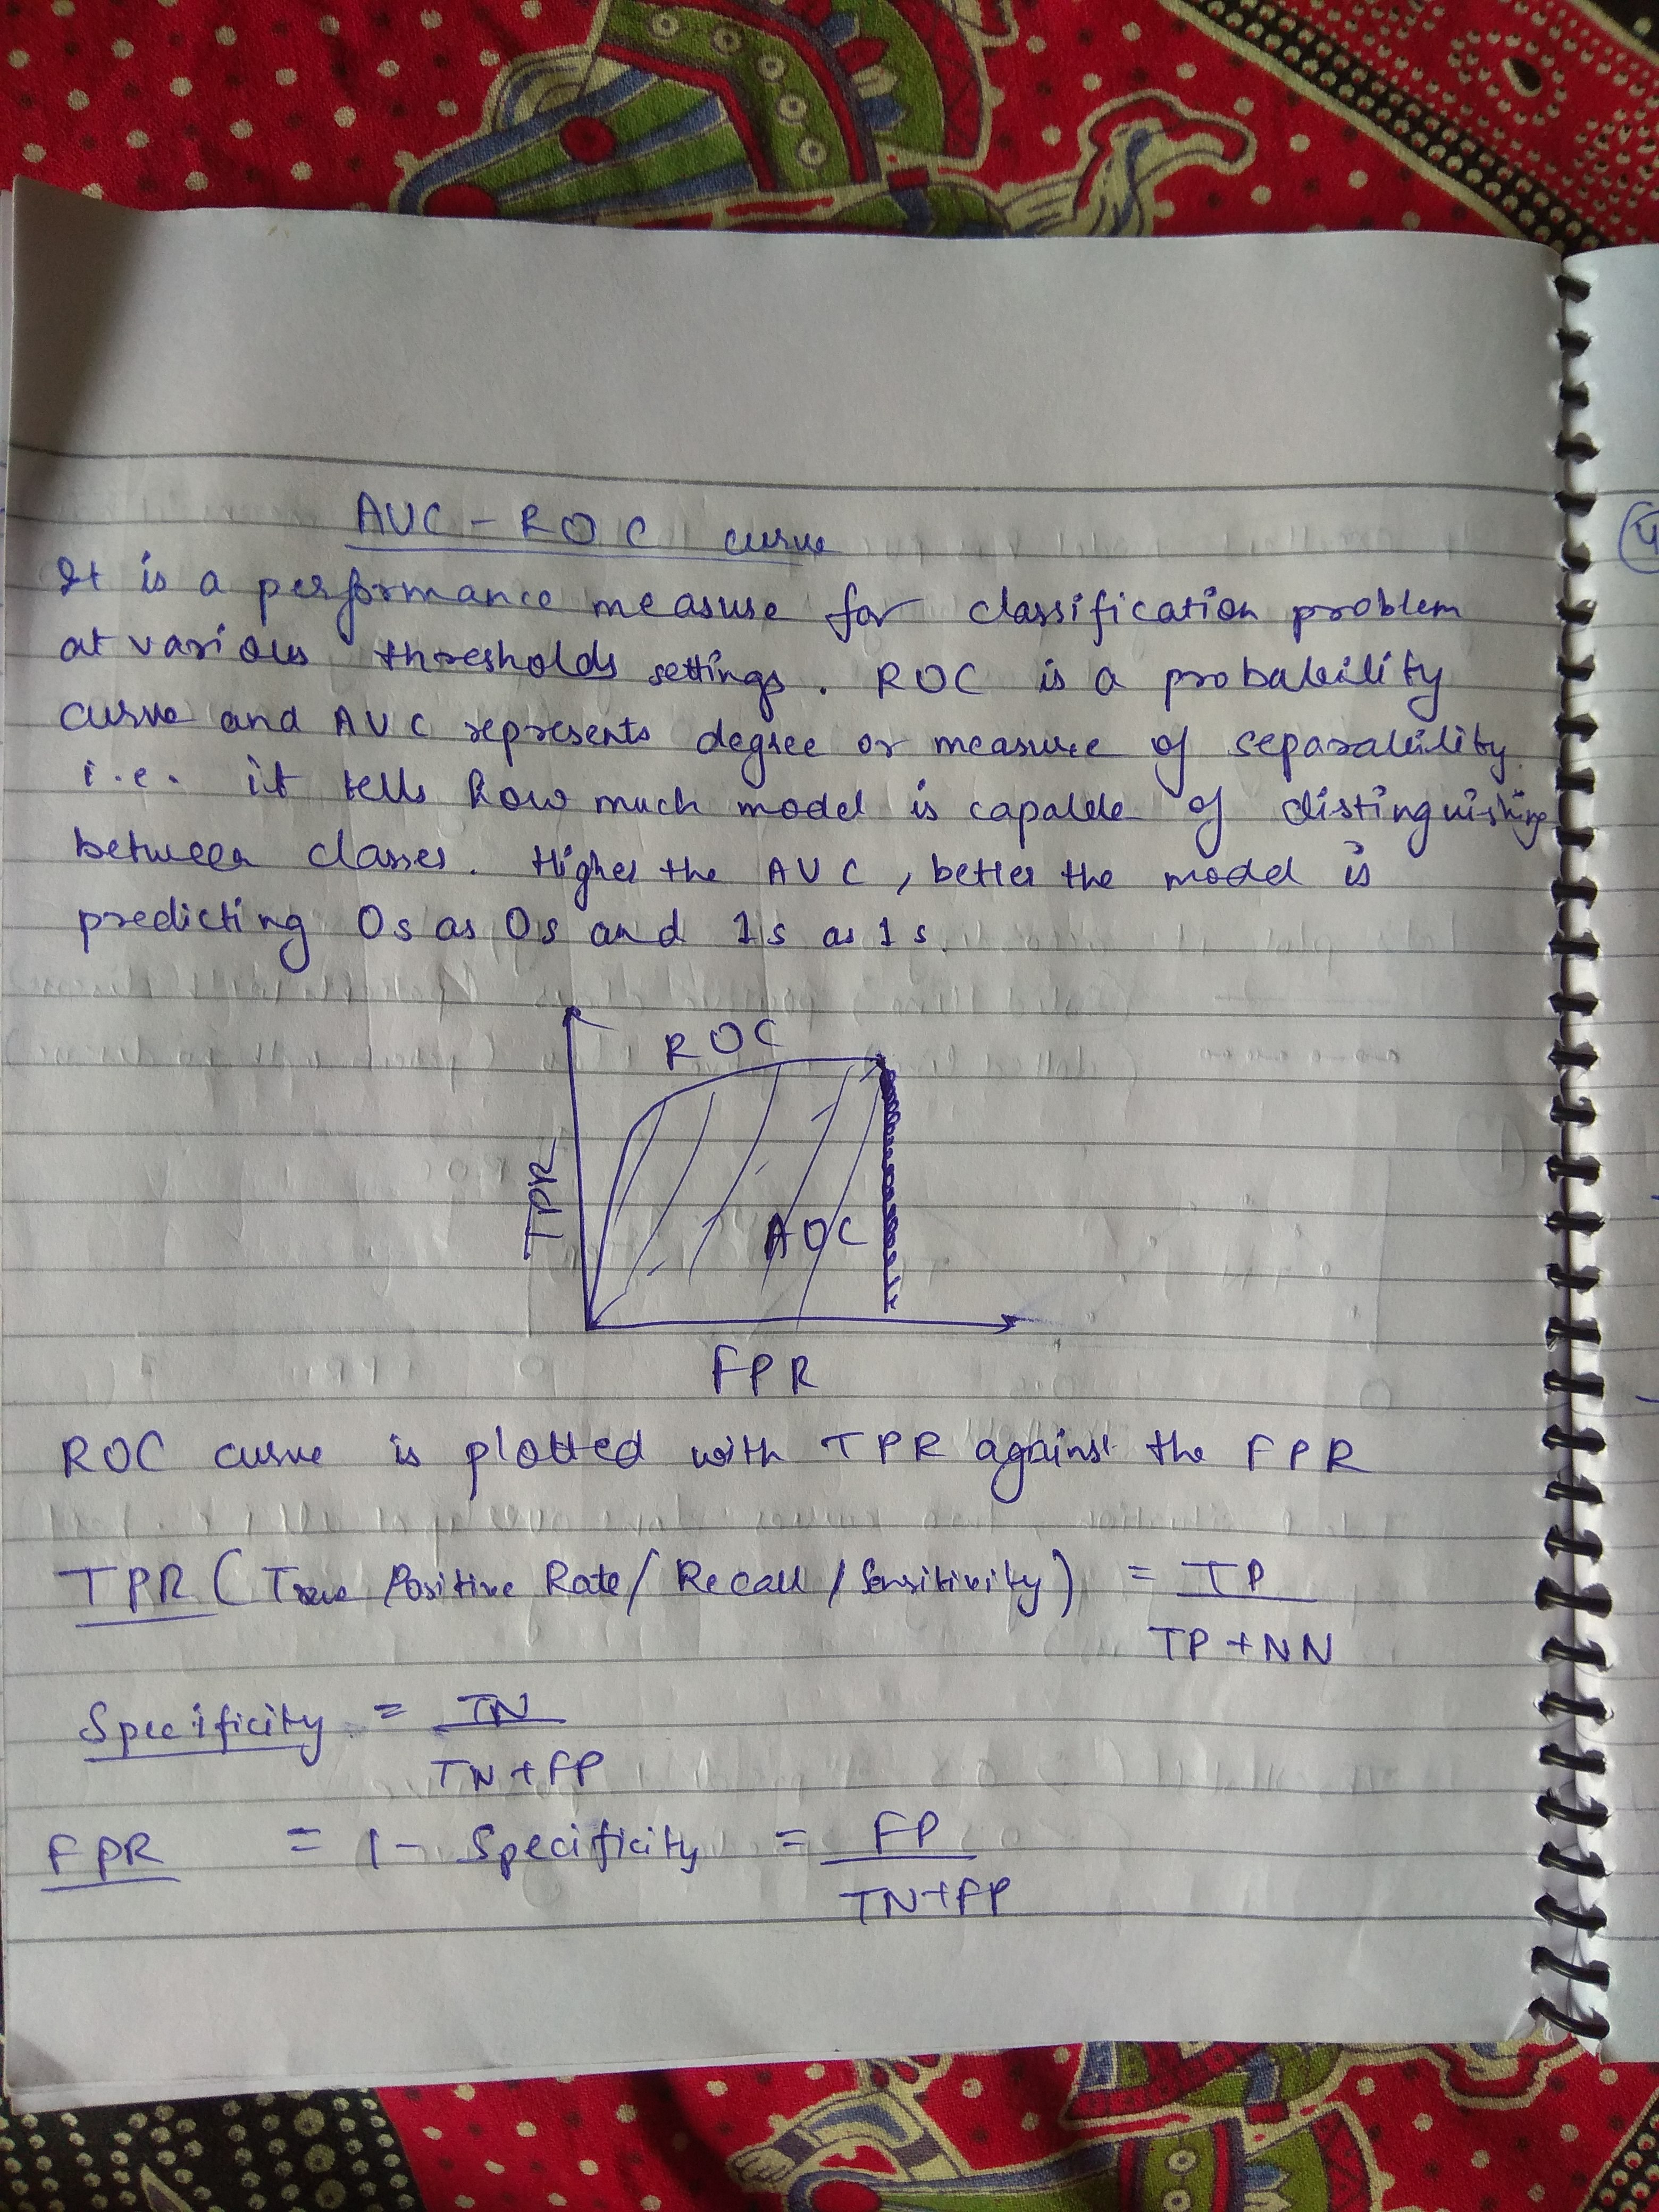 AUC - ROC curve
It is a performance measure for classification problem
at various thresholds settings. ROC is a probability
curve and AUC represents degree or measure of separability
i.e. it tells how much model is capable of distinguishing
between classes. Higher the AUC, better the model is
predicting 0s as 0s and 1s as 1s.
ROC
TPR
AOC
FPR
ROC curve is plotted with TPR against the FPR
TPR (True Positive Rate/Recall/Sensitivity) = TP
TP + NN
Specificity = TN
TN + FP
FPR = 1 - Specificity = FP
TN + FP